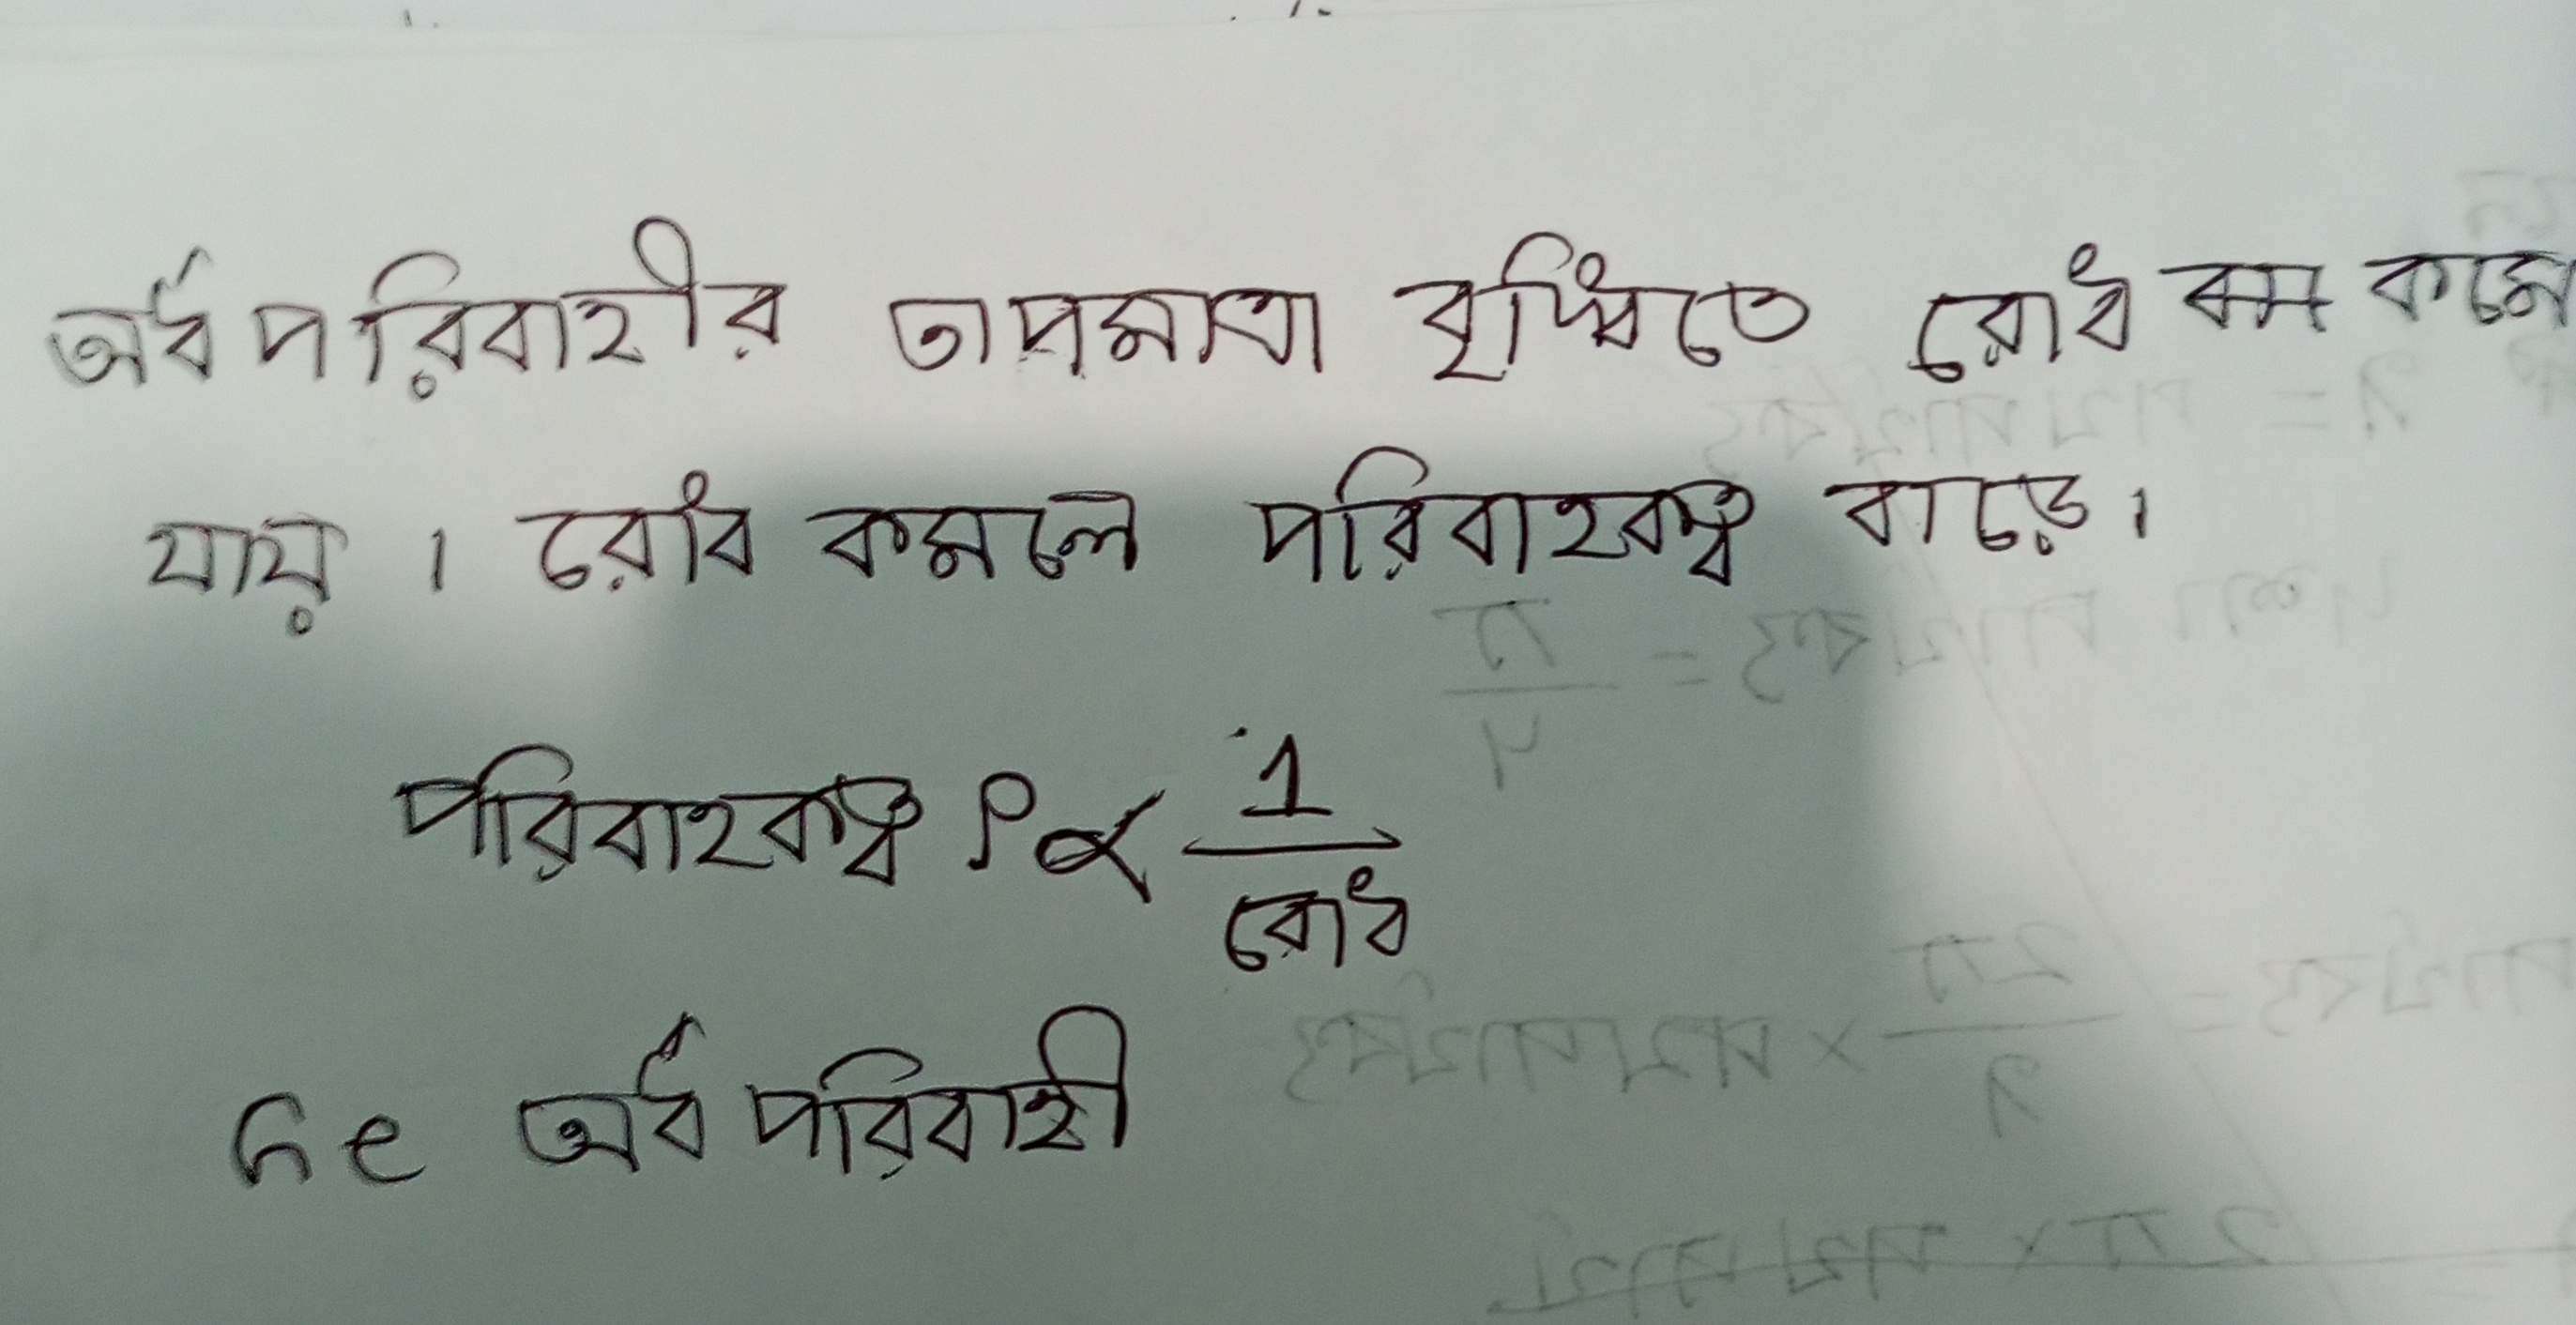 অর্ধপরিবাহীর তাপমাত্রা বৃদ্ধিতে রোধ কমে
যায় । রোধ কমলে পরিবাহকত্ব বাড়ে।
পরিবাহকত্ব ρ ∝ 1/রোধ
Ge অর্ধপরিবাহী